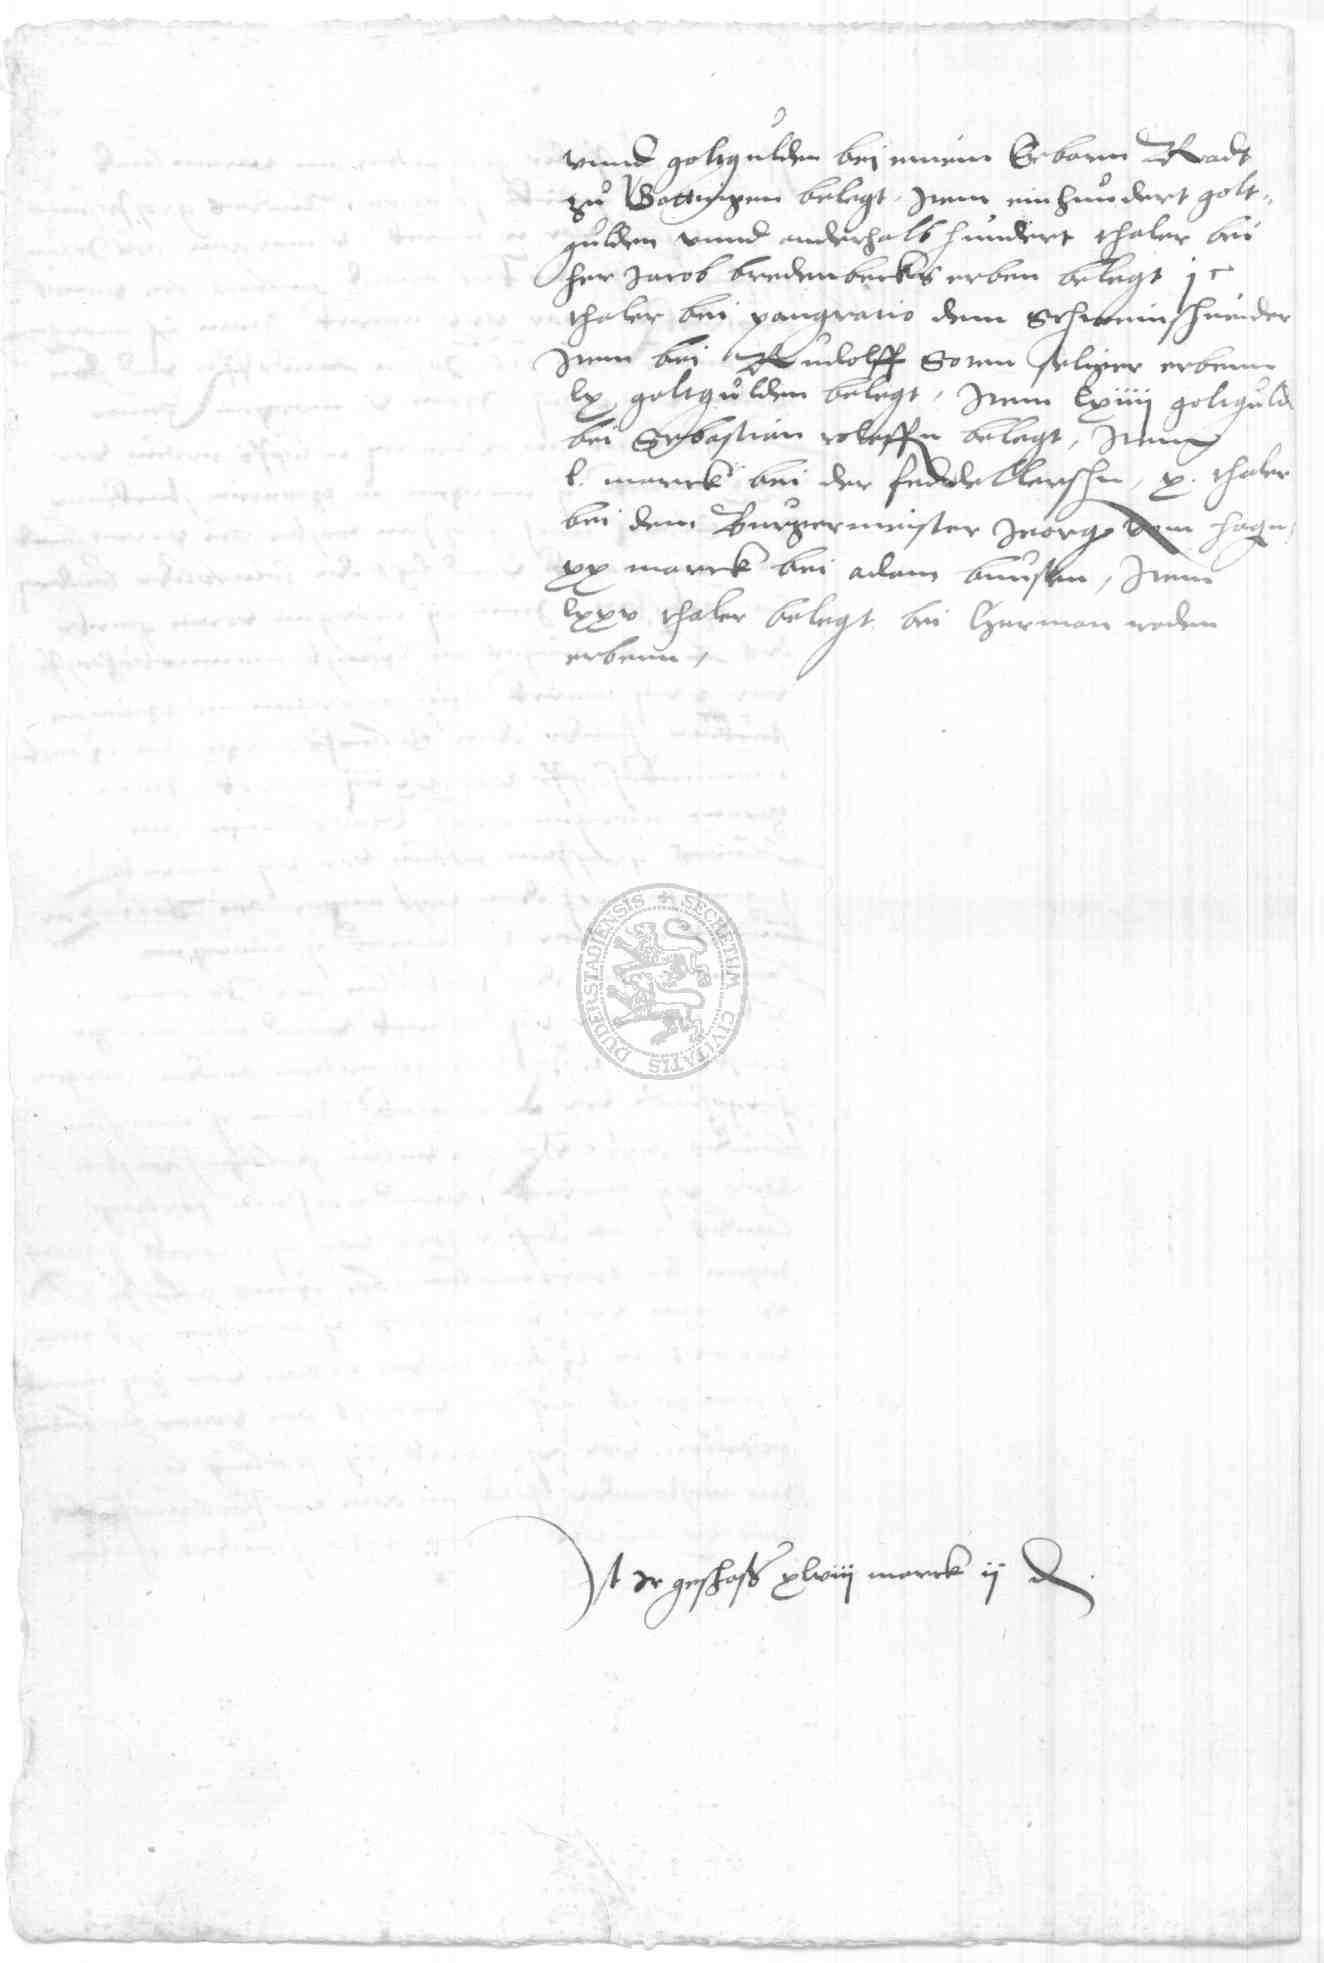 vnnd goltgulden bei einem Erbarn Radt
zu Gottingen belegt, Item einhundert golt-
gulden vnnd anderhalb hundert thaler bei
her Jacob bredenbecks erben belegt jc
thaler bei pangratio dem Schweinshneider
Item bei Rudolff Soten seliger erbenn
lx goltgulden belegt, Item lxiiij goltguld
bei Sebastian roleffn belegt, Item
l marck bei der x thaler
bei dem Burgermeister Jeorge vom hagn,
xx marck bei adam Item
lxxv thaler belegt bei Herman roden
erbenn,
SECRETUM CIVITATIS DUDERSTADIENSIS
Ist Ir geschoss xlviij marck ij d